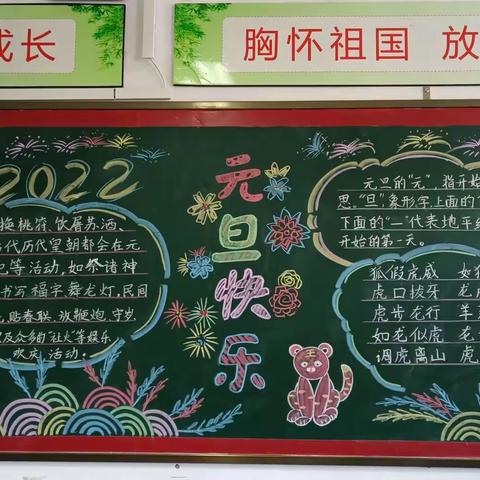 成长
胸怀祖国 放
2022
换桃符、饮屠苏酒、
代历代皇朝都会在元
等活动,如祭诸神
书写福字舞龙灯,民间
贴春联、放鞭炮、守岁
及众多的"社火"等娱乐
欢庆活动。
元旦快乐
元旦的"元",指开始
思,"旦"象形字上面的"
下面的"一"代表地平线
开始的第一天。
狐假虎威 如
虎口拔牙 龙
虎步龙行 羊
如龙似虎 龙
调虎离山 虎